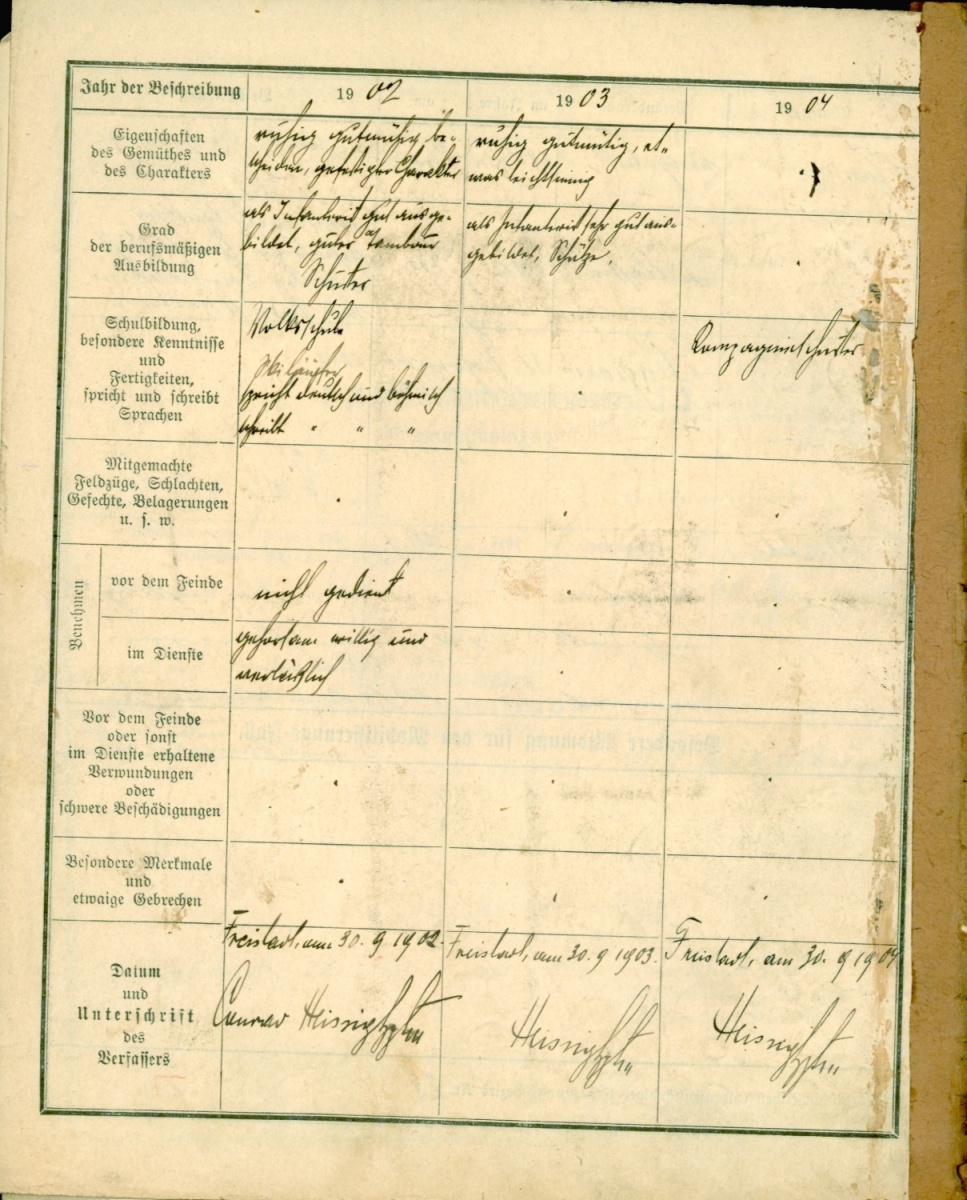 Jahr der Beschreibung
1902
1903
1904
Eigenschaften
des Gemüthes und
des Charakters
ruhig gutmüthig be-
scheiden, gefestigter Charakter
ruhig gutmütig, et-
was leichtsinnig
Grad
der berufsmäßigen
Ausbildung
als Infanterist gut ausge-
bildet, guter Tambour
Schuster
als Infanterist sehr gut aus-
gebildet, Schütze.
Schulbildung,
besondere Kenntnisse
und
Fertigkeiten,
spricht und schreibt
Sprachen
Volksschule
spricht deutsch und böhmisch
schreibt " " "
Kompagnieschuster
Mitgemachte
Feldzüge, Schlachten,
Gefechte, Belagerungen
u. s. w.
Benehmen
vor dem Feinde
nicht gedient
im Dienste
gehorsam willig und
verläßlich
Vor dem Feinde
oder sonst
im Dienste erhaltene
Verwundungen
oder
schwere Beschädigungen
Besondere Merkmale
und
etwaige Gebrechen
Datum
und
Unterschrift
des
Verfassers
Freistadt, am 30. 9 1902.
Conrad
Freistadt, am 30. 9 1903.
Freistadt, am 30. 9 1904